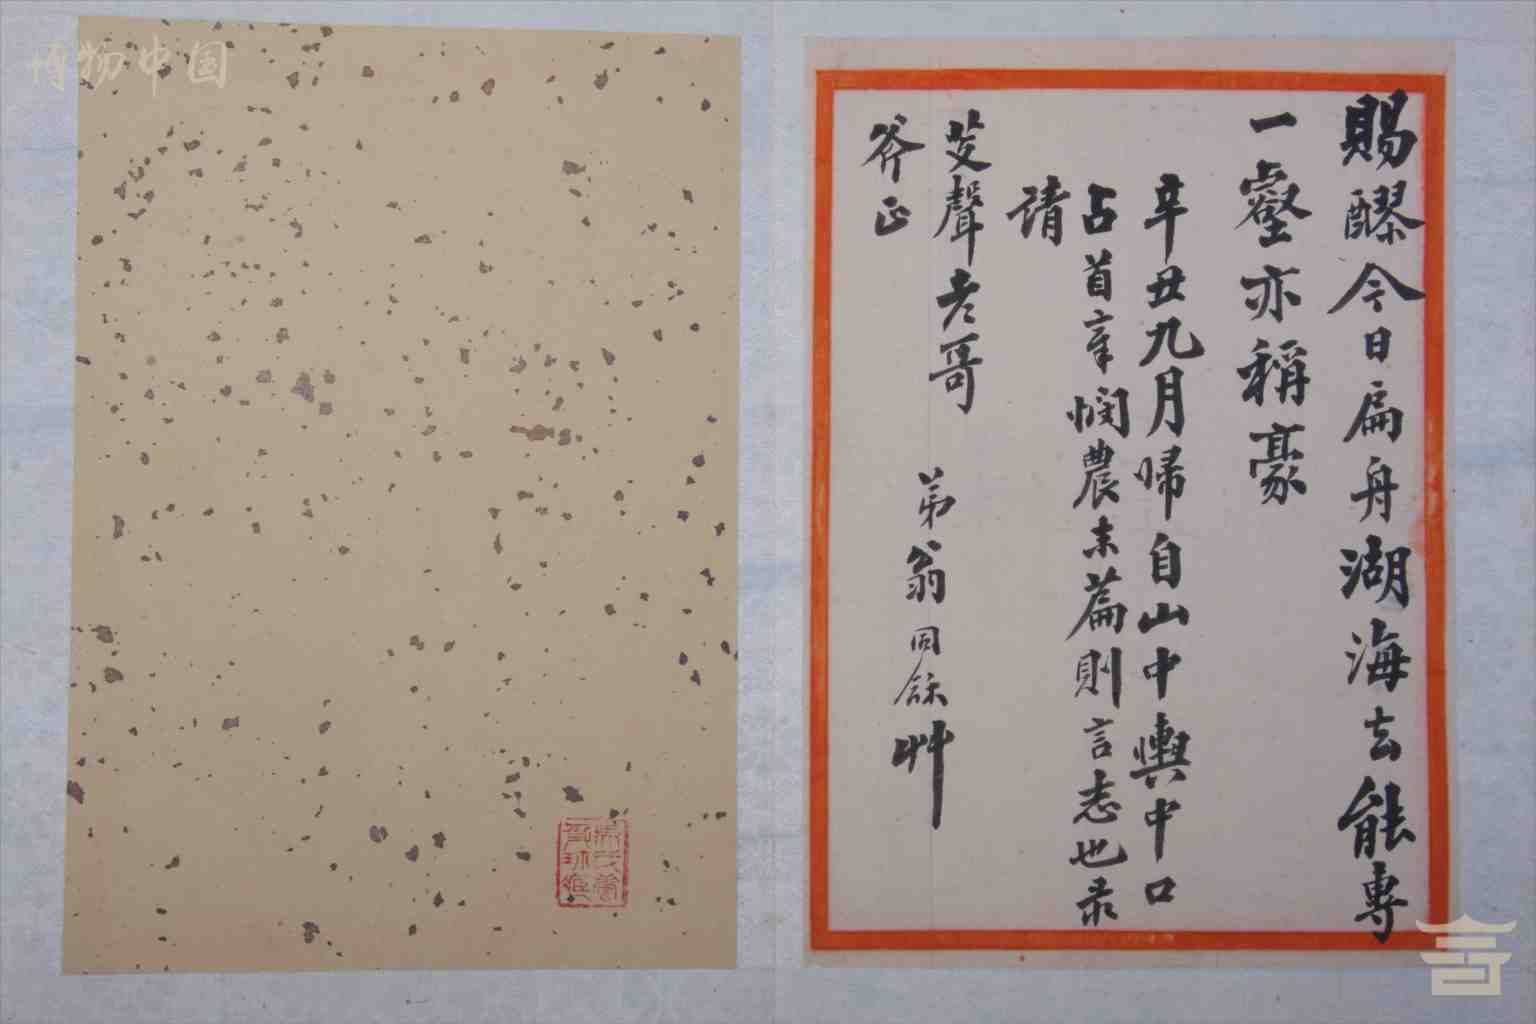 賜醪今日扁舟湖海去能專
一壑亦稱豪
辛丑九月歸自山中輿中口
占首章憫農末篇則言志也录
请
艾聲老哥
斧正
弟翁同龢艸
博物中国